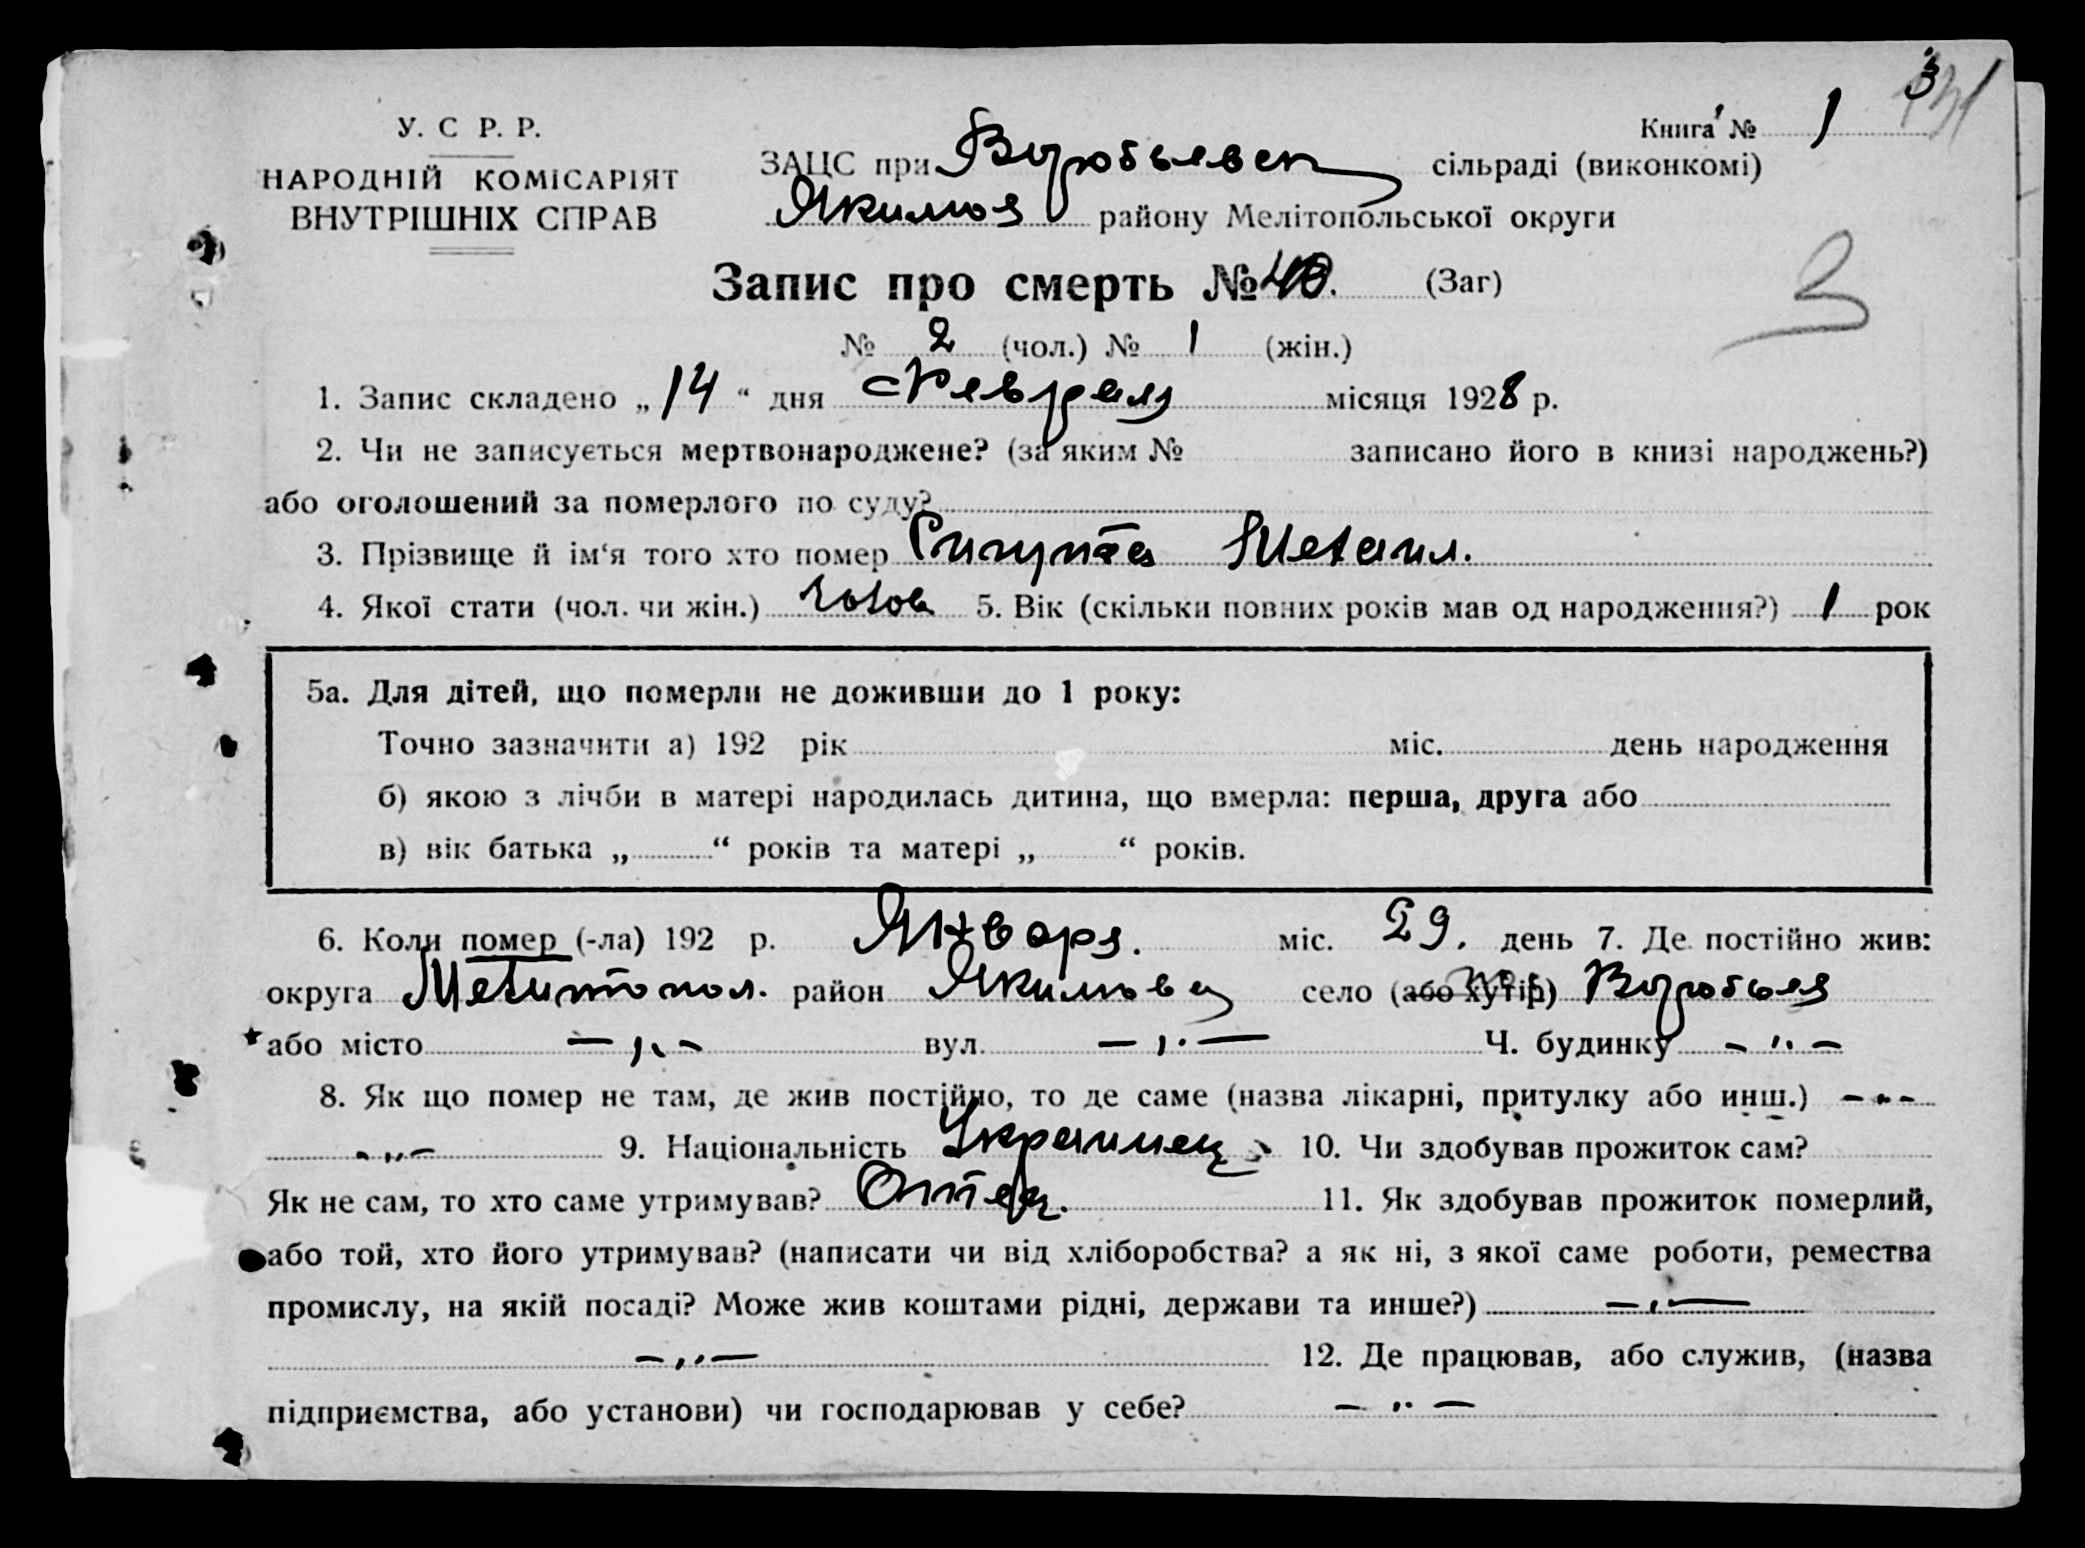 3
У. С Р. Р.
Книга № 1
НАРОДНІЙ КОМІСАРІЯТ
ВНУТРІШНІХ СПРАВ
ЗАЦС при Воробьевск сільраді (виконкомі)
Якимов району Мелітопольської округи
3
Запис про смерть № (Заг)
№ 2 (чол.) № 1 (жін.)
1. Запис складено „14“ дня Февраля місяця 1928 р.
2. Чи не записується мертвонароджене? (за яким № записано його в книзі народжень?)
або оголошений за померлого по суду?
3. Прізвище й ім‘я того хто помер
4. Якої стати (чол. чи жін.) 5. Вік (скільки повних років мав од народження?) 1 рок
5а. Для дітей, що померли не доживши до 1 року:
Точно зазначити а) 192 рік міс. день народження
б) якою з лічби в матері народилась дитина, що вмерла: перша, друга або
в) вік батька „ “ років та матері „ “ років.
6. Коли помер (-ла) 192 р. Января. міс. 29. день 7. Де постійно жив:
округа Мелитопол. район Якимов село (або хутір)
або місто — „ — вул. — „ — Ч. будинку — „ —
8. Як що помер не там, де жив постійно, то де саме (назва лікарні, притулку або инш.) — „ —
— „ — 9. Національність Украинец 10. Чи здобував прожиток сам?
Як не сам, то хто саме утримував? Отец. 11. Як здобував прожиток померлий,
або той, хто його утримував? (написати чи від хліборобства? а як ні, з якої саме роботи, ремества
промислу, на якій посаді? Може жив коштами рідні, держави та инше?) — „ —
— „ — 12. Де працював, або служив, (назва
підприємства, або установи) чи господарював у себе? — „ —